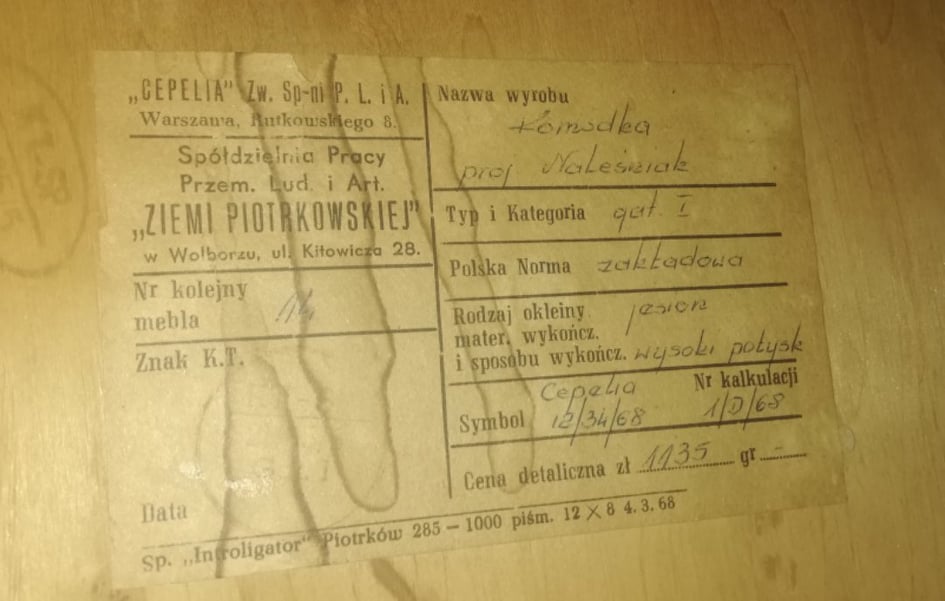 „CEPELIA" Zw. Sp-ni P. L. i A.
Warszawa, Rutkowskiego 8.
Spółdzielnia Pracy
Przem. Lud. i Art.
„ZIEMI PIOTRKOWSKIEJ"
w Wolborzu, ul. Kitowicza 28.
Nr kolejny
mebla 14
Znak K.T.
Data
Nazwa wyrobu
Komodka
proj Naleśniak
Typ i Kategoria gat. I
Polska Norma zakładowa
Rodzaj okleiny jesion
mater. wykończ.
i sposobu wykończ. wysoki połysk
Cepelia Nr kalkulacji
Symbol 12/34/68 1/D/68
Cena detaliczna zł 1135 gr -
Sp. „Introligator" Piotrków 285 — 1000 piśm. 12 X 8 4. 3. 68